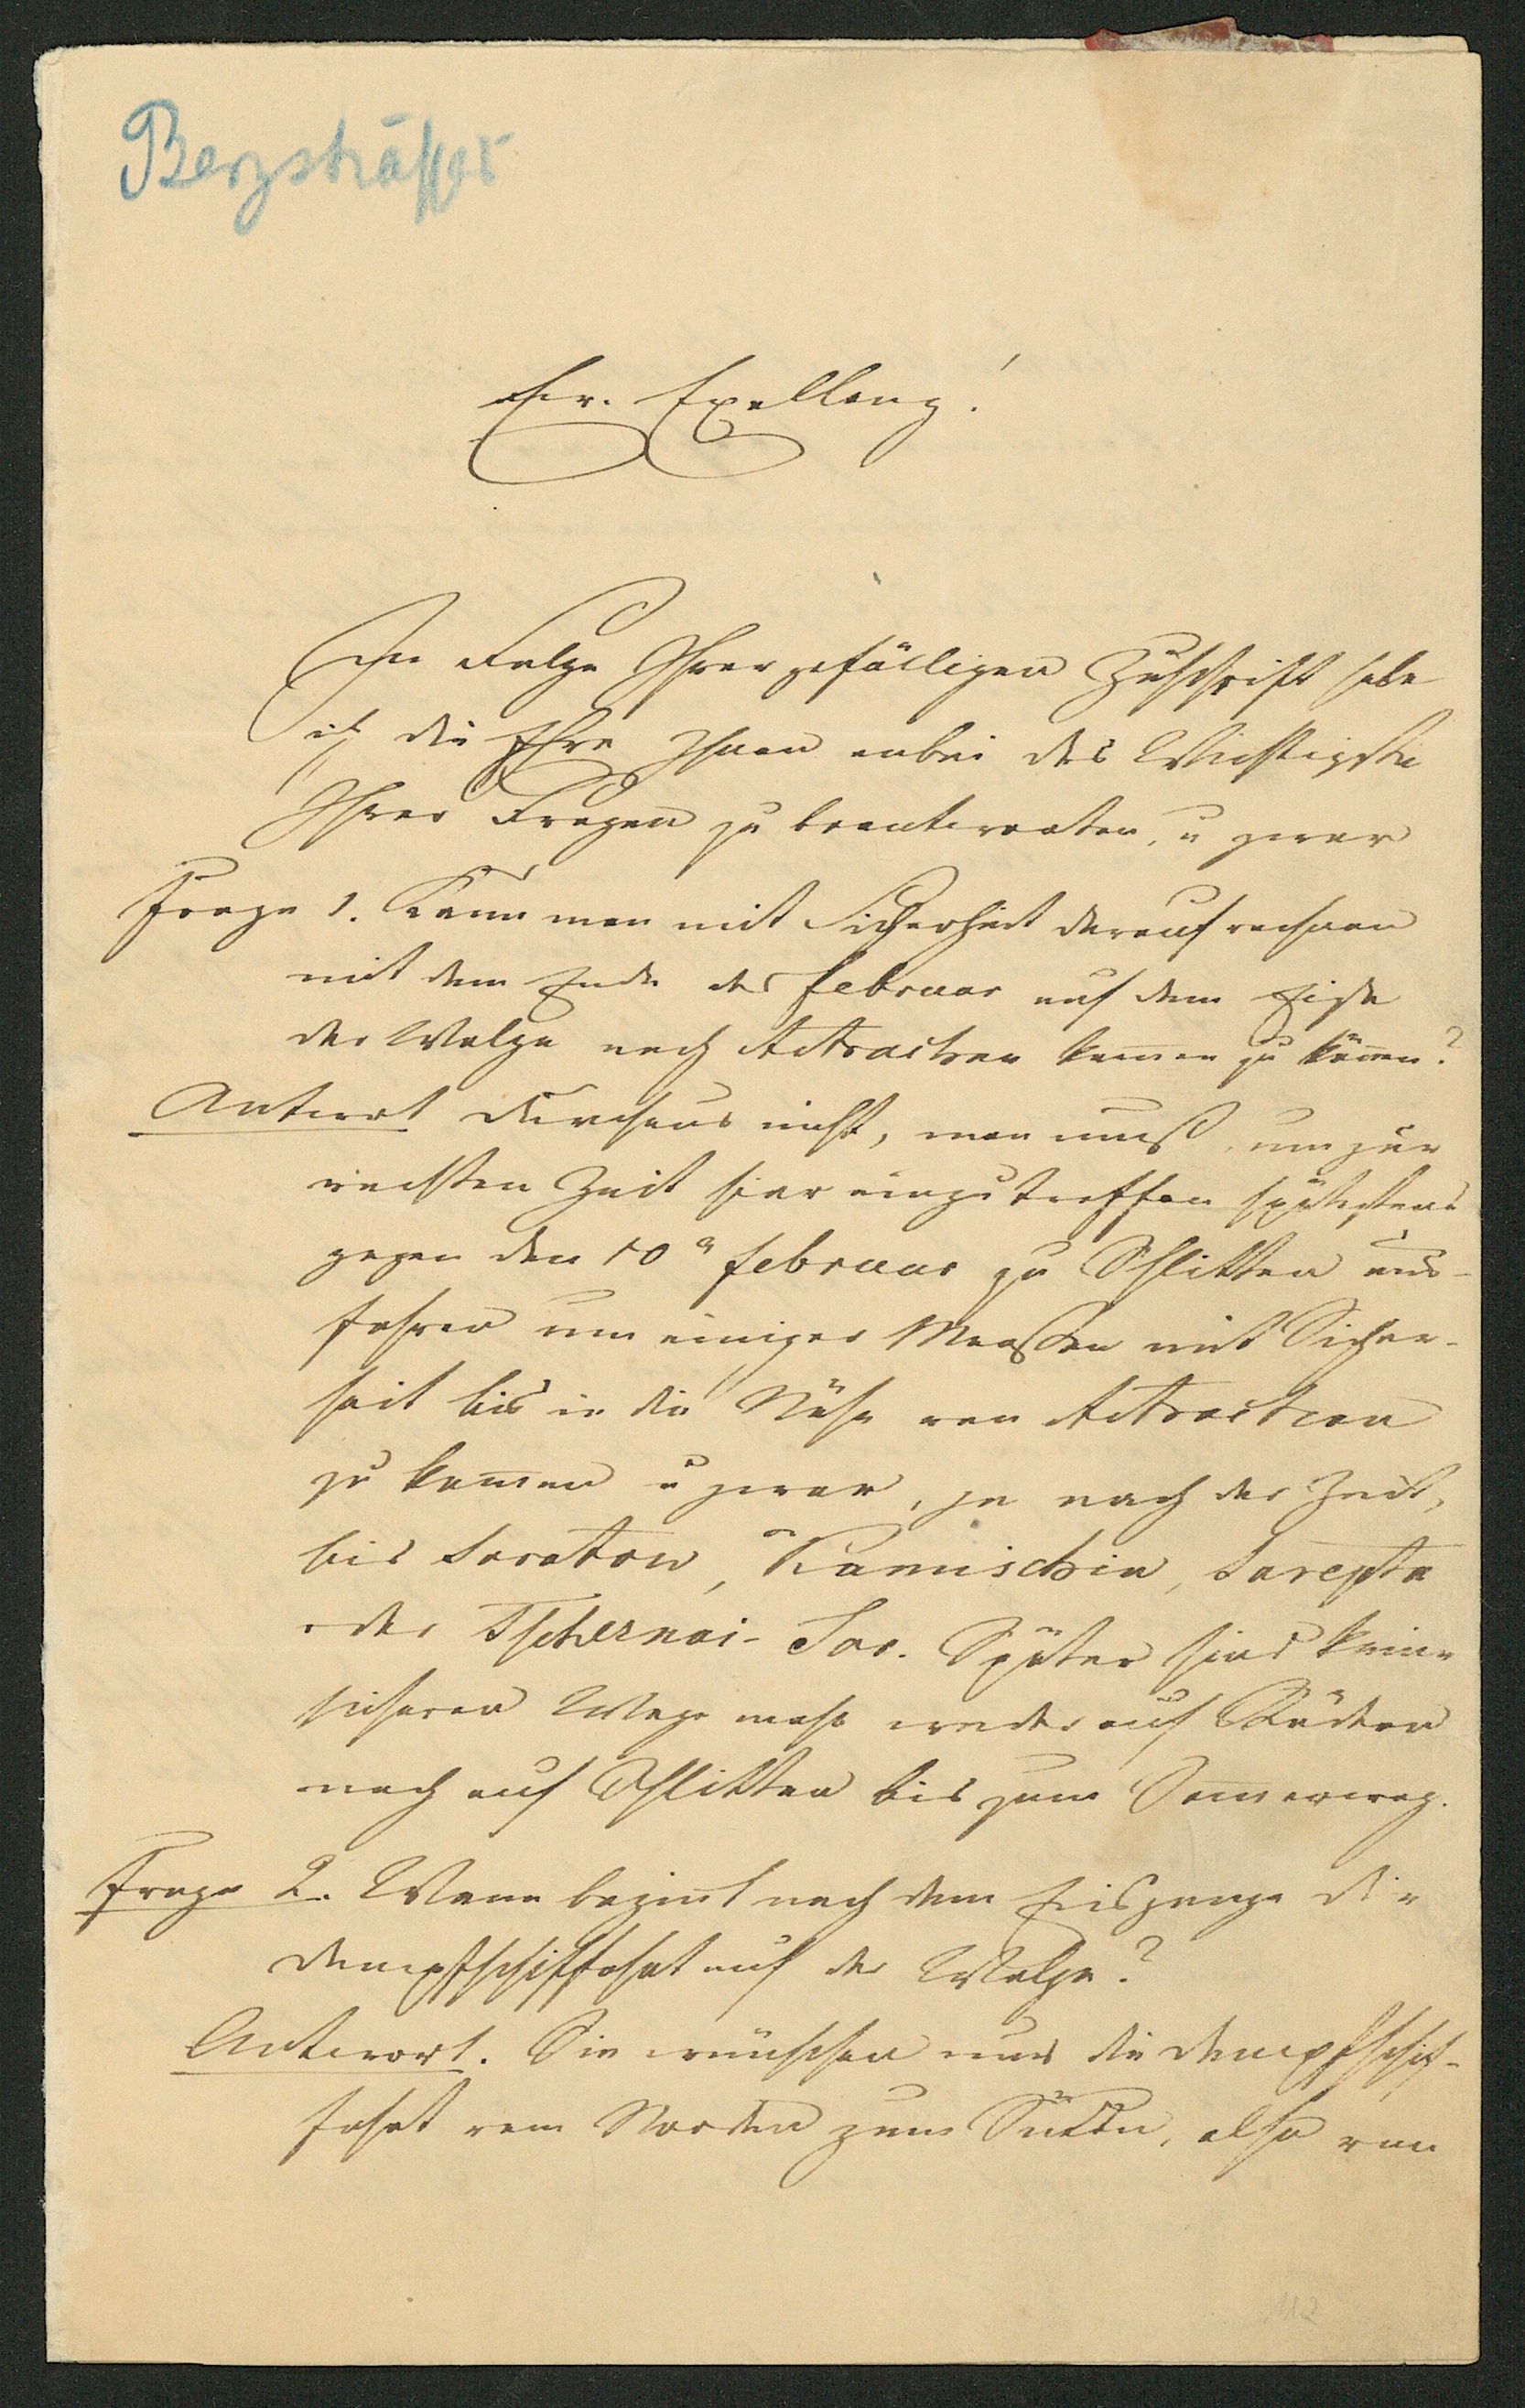 Bergsträsser
Ew. Exellenz!
In Folge Ihrer gefälligen Zuschrift habe
ich die Ehre Ihnen anbei das Wichtigste
Ihrer Fragen zu beantworten, u zwar
Frage 1. Kann man mit Sicherheit darauf rechnen
mit dem Ende des Februar auf dem Eise
der Wolga nach Astrachan kom̄en zu kön̄en?
Antwort Durchaus nicht, man muß, um zur
rechten Zeit hier einzutreffen spätestens
gegen den 10n Februar zu Schlitten aus-
fahren um einiger Maaßen mit Sicher-
heit bis in die Nähe von Astrachan
zu kom̄en u zwar, je nach der Zeit,
bis Saratow, Kamischin, Sarepta
oder Tschernoi-Jar. Später sind keine
sicheren Wege mehr weder auf Rädern
noch auf Schlitten bis zum Som̄erweg.
Frage 2. Wann begin̄t nach dem Eisgange die
Dampfschifffahrt auf der Wolga?
Antwort. Sie wünschen nur die Dampfschif-
fahrt vom Norden zum Süden, also von
112